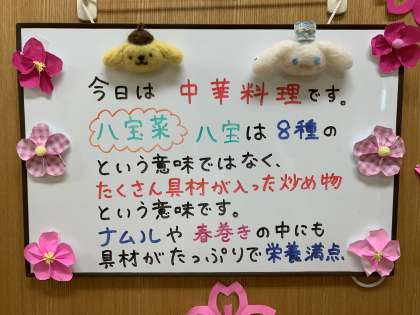 今日は 中華料理です。
八宝菜 八宝は8種の
という意味ではなく、
たくさん具材が入った炒め物
という意味です。
ナムルや春巻きの中にも
具材がたっぷりで栄養満点